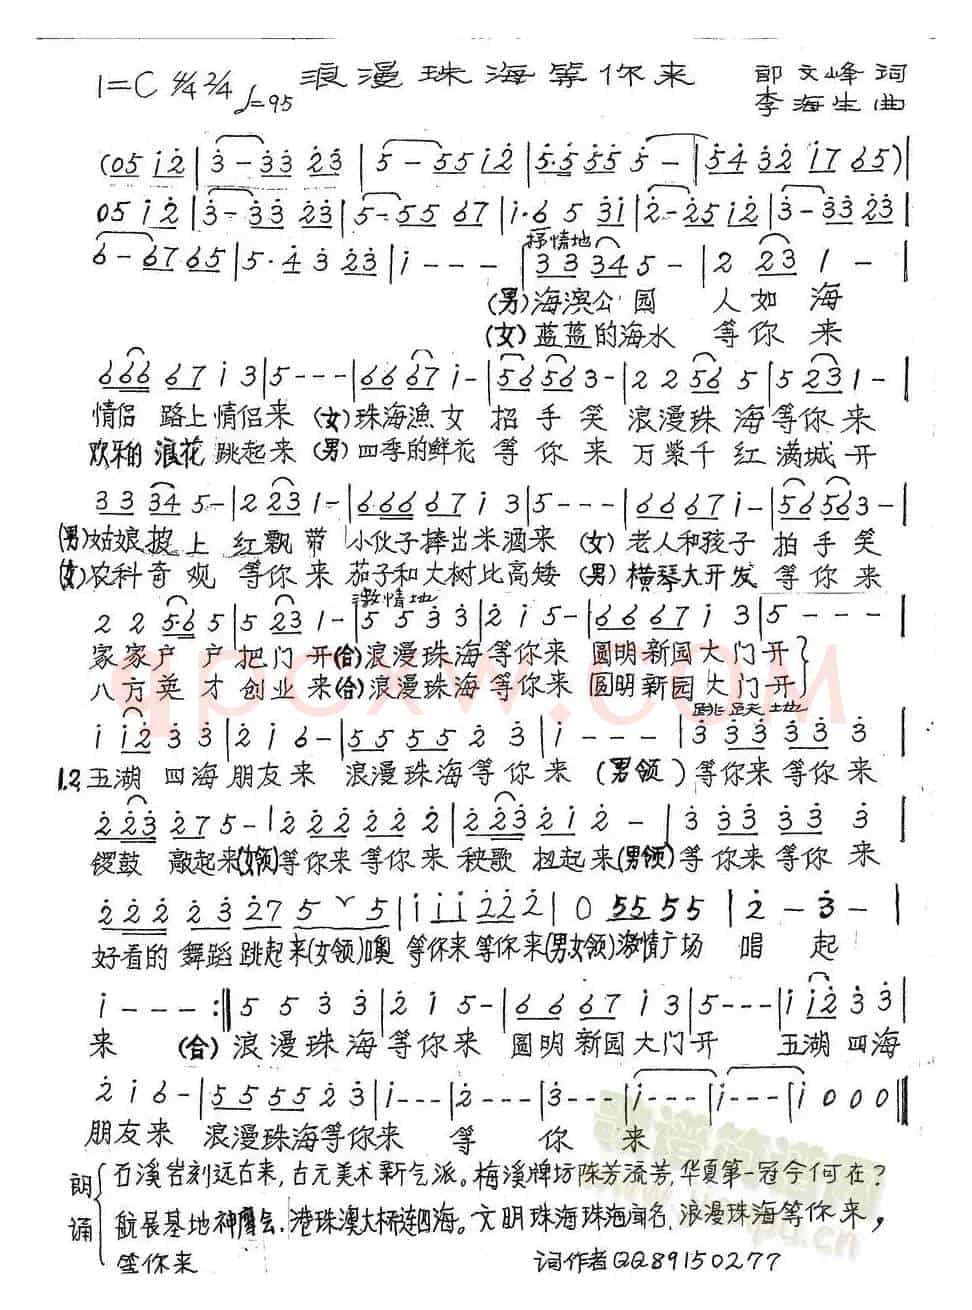 1=C 4/4 2/4 ♩=95 浪漫珠海等你来 郎文峰词
李海生曲
(05 i2̇ | 3̇ - 3̇3̇ 2̇3̇ | 5̇ - 5̇5̇ i2̇ | 5̇·5̇ 5̇5̇ 5̇ - | 5̇4̇ 3̇2̇ i7 65)|
05 i2̇ | 3̇ - 3̇3̇ 2̇3̇ | 5 - 55 67 | i·6 5 3̇i | 2̇ - 2̇5 i2̇ | 3̇ - 3̇3̇ 2̇3̇ |
抒情地
6 - 67 65 | 5·4̇ 3̇ 2̇3̇ | i - - - | 33 34 5 - | 2 23 1 - |
(男)海滨公园 人如海
(女)蓝蓝的海水 等你来
666 67 i 3 | 5 - - - | 66 67 i - | 56 56 3 - | 2 2 56 5 | 5 23 1 - |
情侣 路上情侣来 (女)珠海渔女 招手笑 浪漫珠海等你来
欢呀的 浪花 跳起来 (男)四季的鲜花 等你来 万紫千红满城开
33 34 5 - | 2 23 1 - | 666 67 i 3 | 5 - - - | 66 67 i - | 56 56 3 - |
(男)姑娘披上红飘带 小伙子捧出米酒来 (女)老人和孩子 拍手笑
(女)农科奇观 等你来 茄子和大树比高矮 (男)横琴大开发 等你来
激情地
2 2 5·6 5 | 5 23 1 - | 5 5 3̇ 3̇ | 2̇ i 5 - | 66 67 i 3 | 5 - - - |
家家户户把门开(合)浪漫珠海等你来 圆明新园大门开
八方英才创业来(合)浪漫珠海等你来 圆明新园大门开
跳跃地
i i2̇ 3̇ 3̇ | 2̇ i 6 - | 55 55 2̇ 3̇ | i - - - | 3̇ 3̇3̇ 3̇3̇ 3̇ |
1.2.五湖四海朋友来 浪漫珠海等你来 (男领)等你来等你来
2̇2̇3̇ 2̇75 - | 2̇ 2̇2̇ 2̇2̇ 2̇ | 2̇2̇3̇ 2̇i 2̇ - | 3̇ 3̇3̇ 3̇3̇ 3̇
锣鼓 敲起来(女领)等你来等你来 秧歌 扭起来(男领)等你来等你来
2̇2̇2̇ 2̇3̇ 2̇7 5 ˇ 5 | i ii 2̇2̇2̇ | 0 55 55 | 2̇ - 3̇ - |
好看的 舞蹈 跳起来(女领)噢 等你来等你来(男女领)激情广场 唱起
i - - - :‖ 5 5 3̇ 3̇ | 2̇ i 5 - | 66 67 i 3 | 5 - - - | i i2̇ 3̇ 3̇ |
来 (合)浪漫珠海等你来 圆明新园大门开 五湖四海
2̇ i 6 - | 55 55 2̇ 3̇ | i - - - | 2̇ - - - | 3̇ - - - | i - - - | i - - - | i 0 0 0 ‖
朋友来 浪漫珠海等你来 等你来
朗诵 石溪岩刻远古来,古元美术新气派。梅溪牌坊陈芳流芳,华夏第一冠今何在?
航展基地神鹰会,港珠澳大桥连四海。文明珠海珠海闻名,浪漫珠海等你来,
等你来 词作者QQ89150277
qpcxw.com
歌谱简谱网